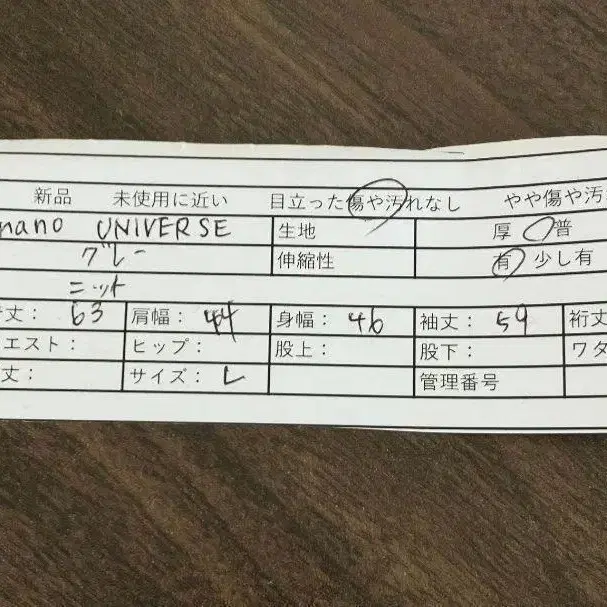 新品 未使用に近い 目立った傷や汚れなし やや傷や汚
nano UNIVERSE 生地 厚 普
グレー 伸縮性 有 少し有
ニット
丈： 63 肩幅： 44 身幅： 46 袖丈： 59 裄丈
エスト： ヒップ： 股上： 股下： ワタ
丈： サイズ： L 管理番号